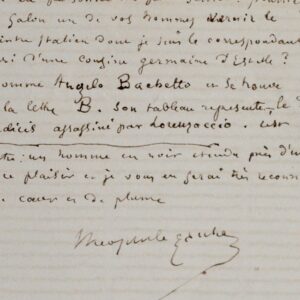 Salon un de vos hommes
intre italien dont je suis le correspondant
ari d'une cousine germaine d'Estelle ?
omme Angelo Bachetto et se trouve
la lettre B. son tableau represente le
édicis assassiné par Lorenzaccio. c'est
un homme en noir etendu près d'un
ce plaisir et je vous en serai très reconn
coeur et de plume